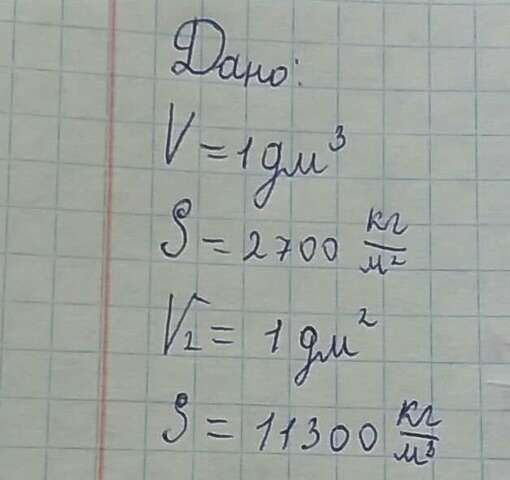 Дано:
V = 1 дм³
ρ = 2700 кг/м²
V₂ = 1 дм²
ρ = 11300 кг/м³